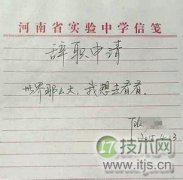 河南省实验中学信笺
辞职申请
世界那么大，我想去看看。
17技术网
www.itjs.cn